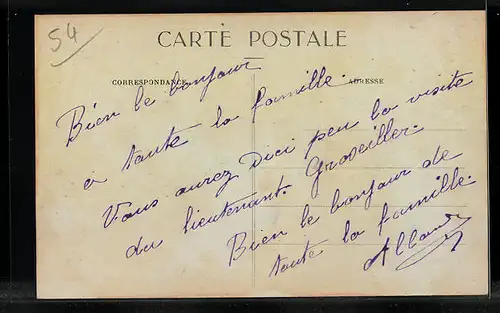 54
CARTE POSTALE
CORRESPONDANCE
ADRESSE
Bien le bonjour
a toute la famille.
Vous aurez Dici peu la visite
du lieutenant. Groseiller.
Bien le bonjour de
toute la famille.